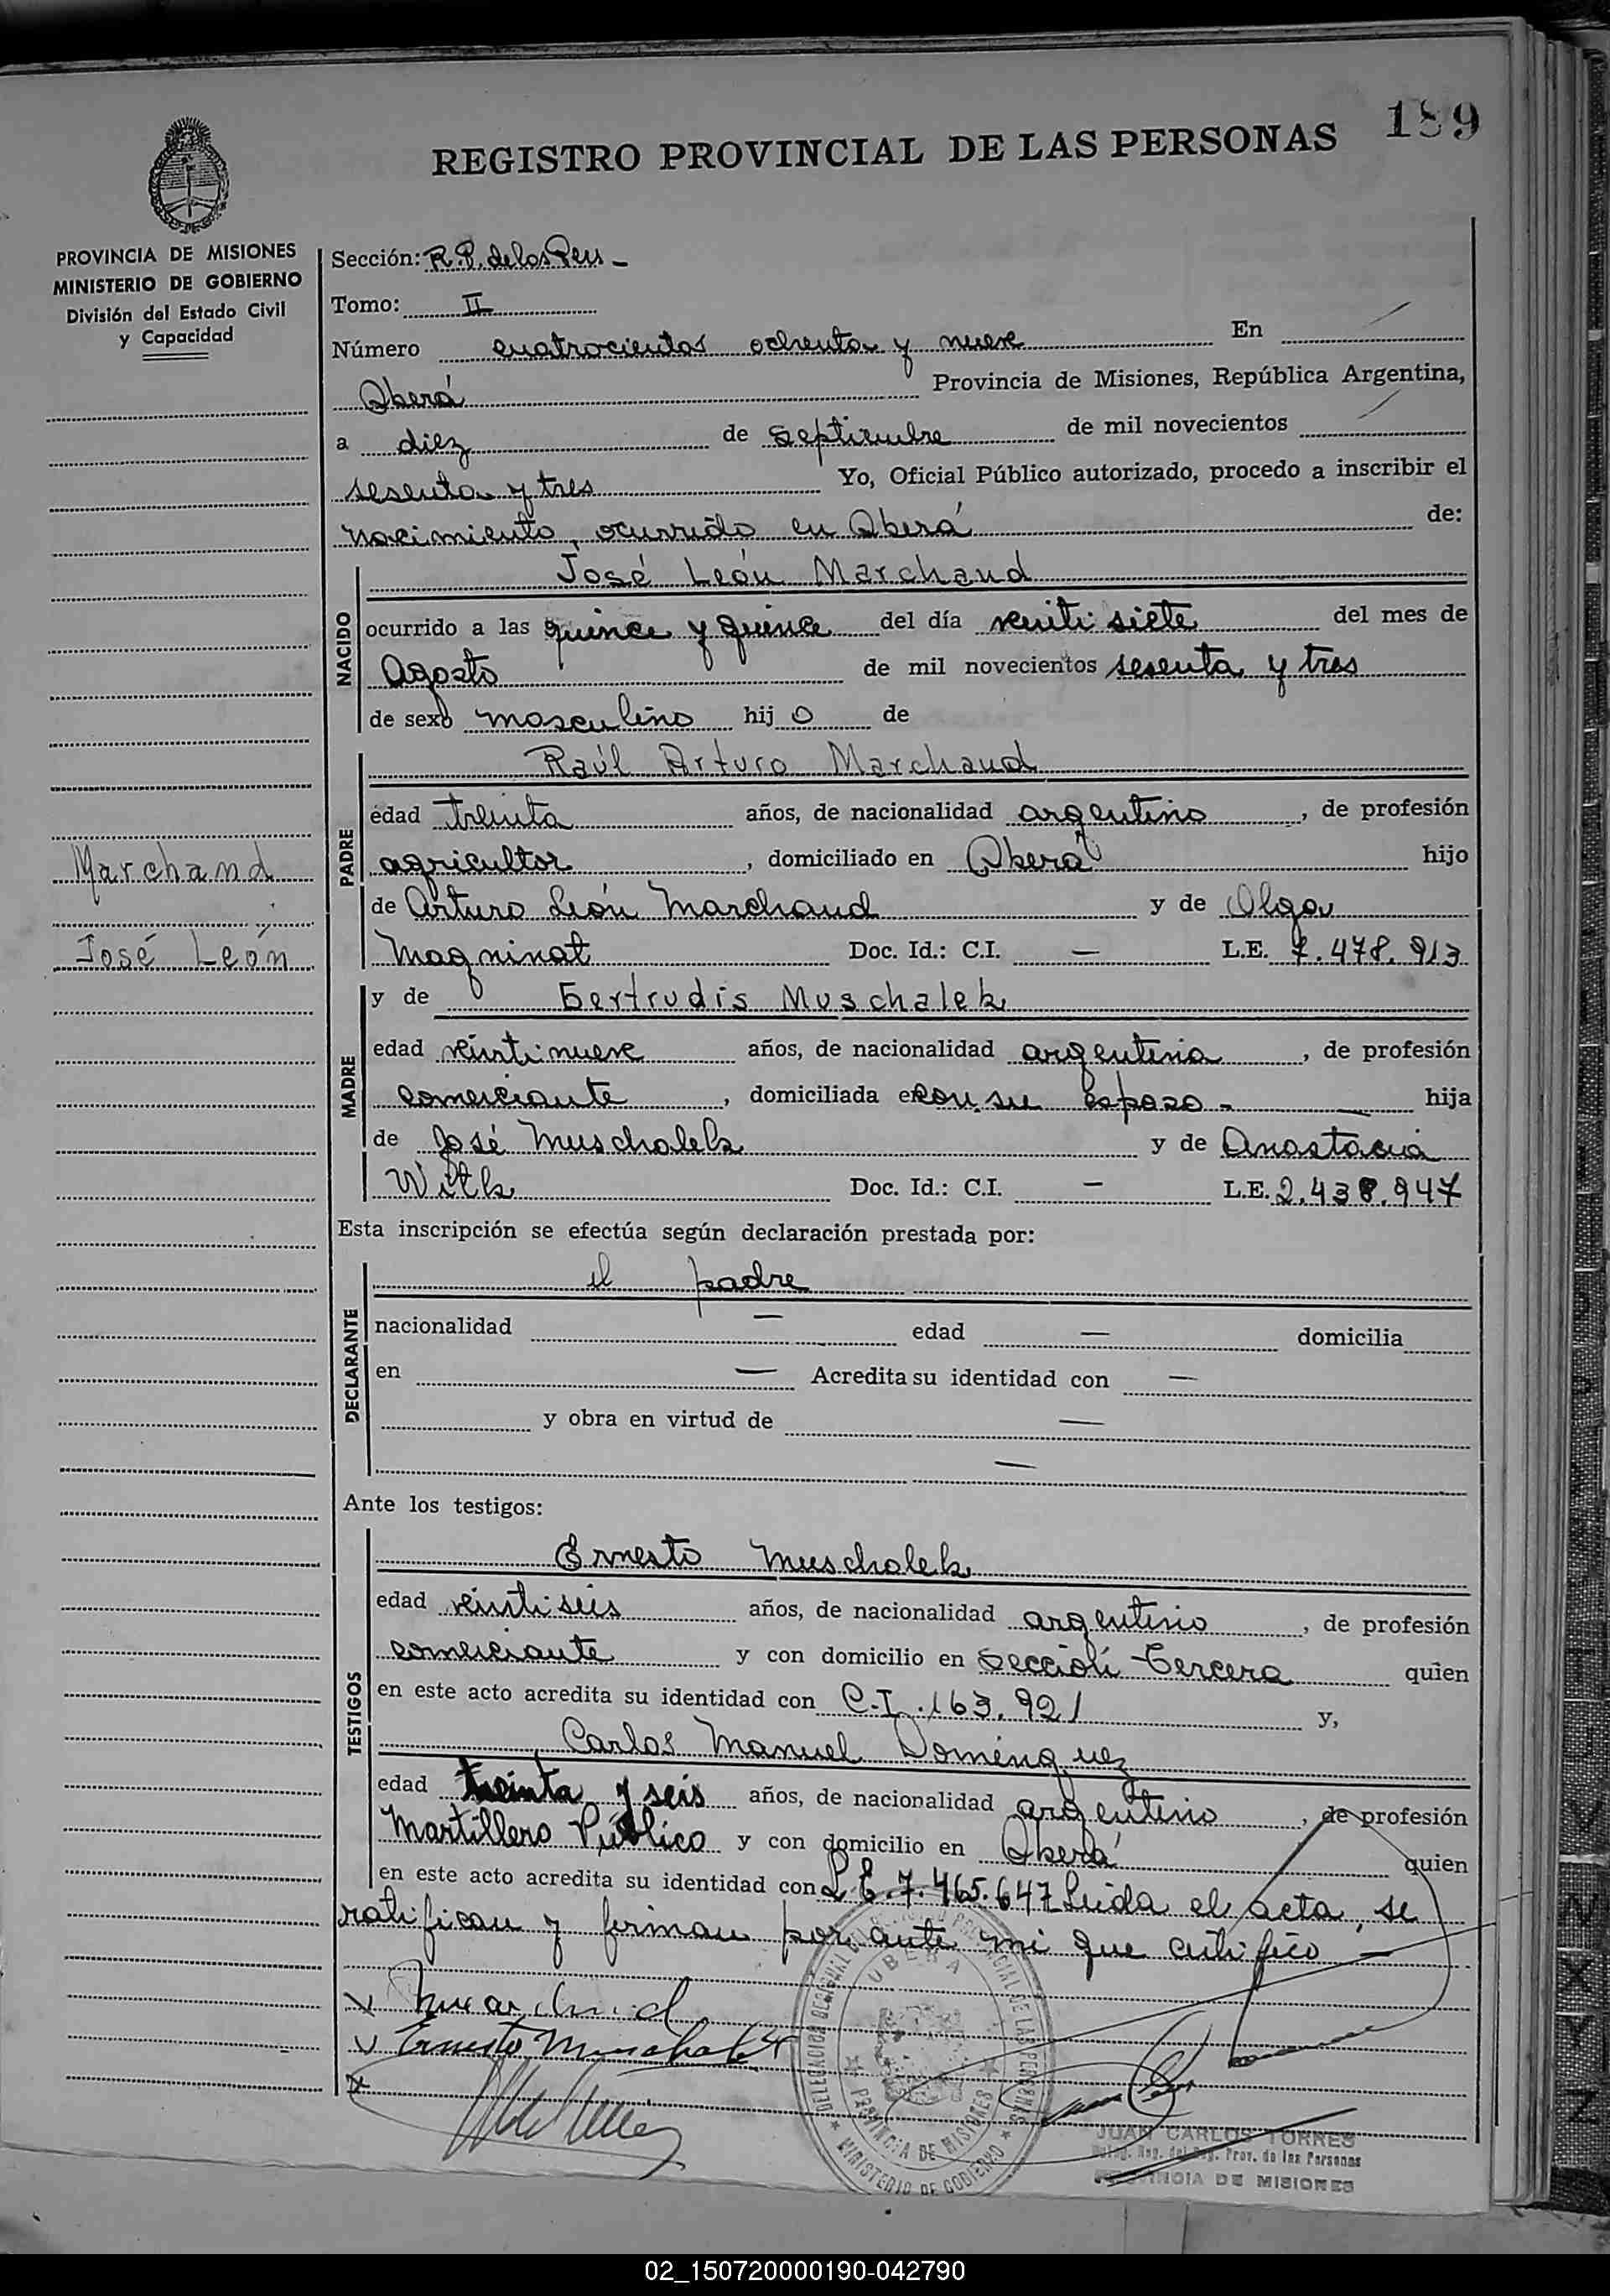 189
REGISTRO PROVINCIAL DE LAS PERSONAS
PROVINCIA DE MISIONES
MINISTERIO DE GOBIERNO
División del Estado Civil
y Capacidad
Marchand
José León
Sección: R.P. de las Pers -
Tomo: II
Número cuatrocientos ochenta y nueve En
Oberá Provincia de Misiones, República Argentina,
a diez de septiembre de mil novecientos
sesenta y tres Yo, Oficial Público autorizado, procedo a inscribir el
nacimiento, ocurrido en Oberá de:
NACIDO
José León Marchand
ocurrido a las quince y quince del día veinti siete del mes de
Agosto de mil novecientos sesenta y tres
de sexo masculino hij o de
PADRE
Raúl Arturo Marchand
edad treinta años, de nacionalidad argentino, de profesión
agricultor, domiciliado en Oberá hijo
de Arturo León Marchand y de Olga
Magninat Doc. Id.: C.I. — L.E. 7.478.913
MADRE
y de Gertrudis Muschalek
edad veintinueve años, de nacionalidad argentina, de profesión
comerciante, domiciliada en con su esposo - — hija
de José Muschalek y de Anastacia
Witk Doc. Id.: C.I. — L.E. 2.438.947
Esta inscripción se efectúa según declaración prestada por:
DECLARANTE
el padre
nacionalidad — edad — domicilia
en — Acredita su identidad con —
y obra en virtud de —
—
Ante los testigos:
TESTIGOS
Ernesto Muschalek
edad veintiseis años, de nacionalidad argentino, de profesión
comerciante y con domicilio en Sección Tercera quien
en este acto acredita su identidad con C.I. 163.921 y,
Carlos Manuel Dominguez
edad treinta y seis años, de nacionalidad argentino, de profesión
Martillero Público y con domicilio en Oberá quien
en este acto acredita su identidad con L.E. 7.465.647 Leida el acta, se
ratifican y firman por ante mi que certifico —
Marchand
Ernesto Muschalek
DELEGACION REGIONAL DEL REGISTRO PROVINCIAL DE LAS PERSONAS
OBERA
PROVINCIA DE MISIONES
MINISTERIO DE GOBIERNO
JUAN CARLOS TORRES
Deleg. Reg. del Reg. Prov. de las Personas
PROVINCIA DE MISIONES
02_150720000190-042790